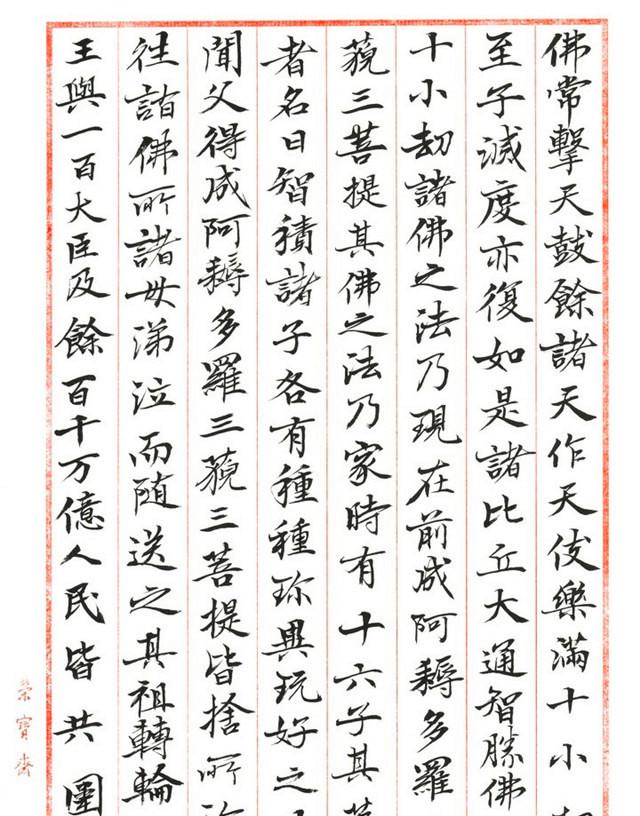 佛常擊天鼓餘諸天作天伎樂滿十小
至于滅度亦復如是諸比丘大通智勝佛
十小劫諸佛之法乃現在前成阿耨多羅
藐三菩提其佛之法乃家時有十六子其
者名曰智積諸子各有種種珍異玩好之
聞父得成阿耨多羅三藐三菩提皆捨所
徃詣佛所諸母涕泣而隨送之其祖轉輪
王與一百大臣及餘百千万億人民皆共圍
榮寶齋